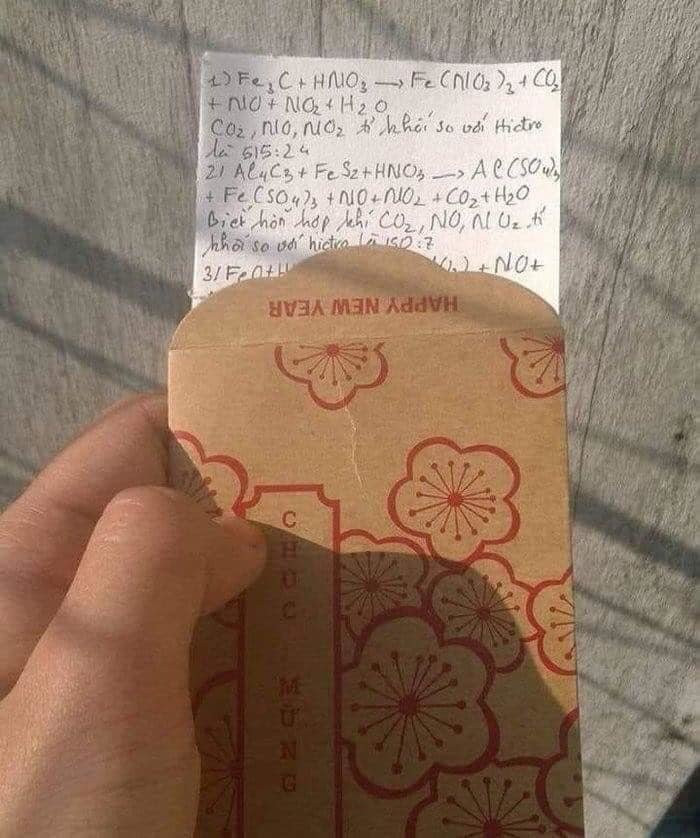 1) Fe3C + HNO3 → Fe(NO3)3 + CO2
+ NO + NO2 + H2O
CO2, NO, NO2 tỉ khối so với Hictro
là 515:24
2) Al4C3 + FeS2 + HNO3 → Al(SO4)3
+ Fe(SO4)3 + NO + NO2 + CO2 + H2O
Biết hỗn hợp khí CO2, NO, NO2 tỉ
khối so với hictro là 150:7
3) FeO + + NO +
HAPPY NEW YEAR
CHÚC MỪNG